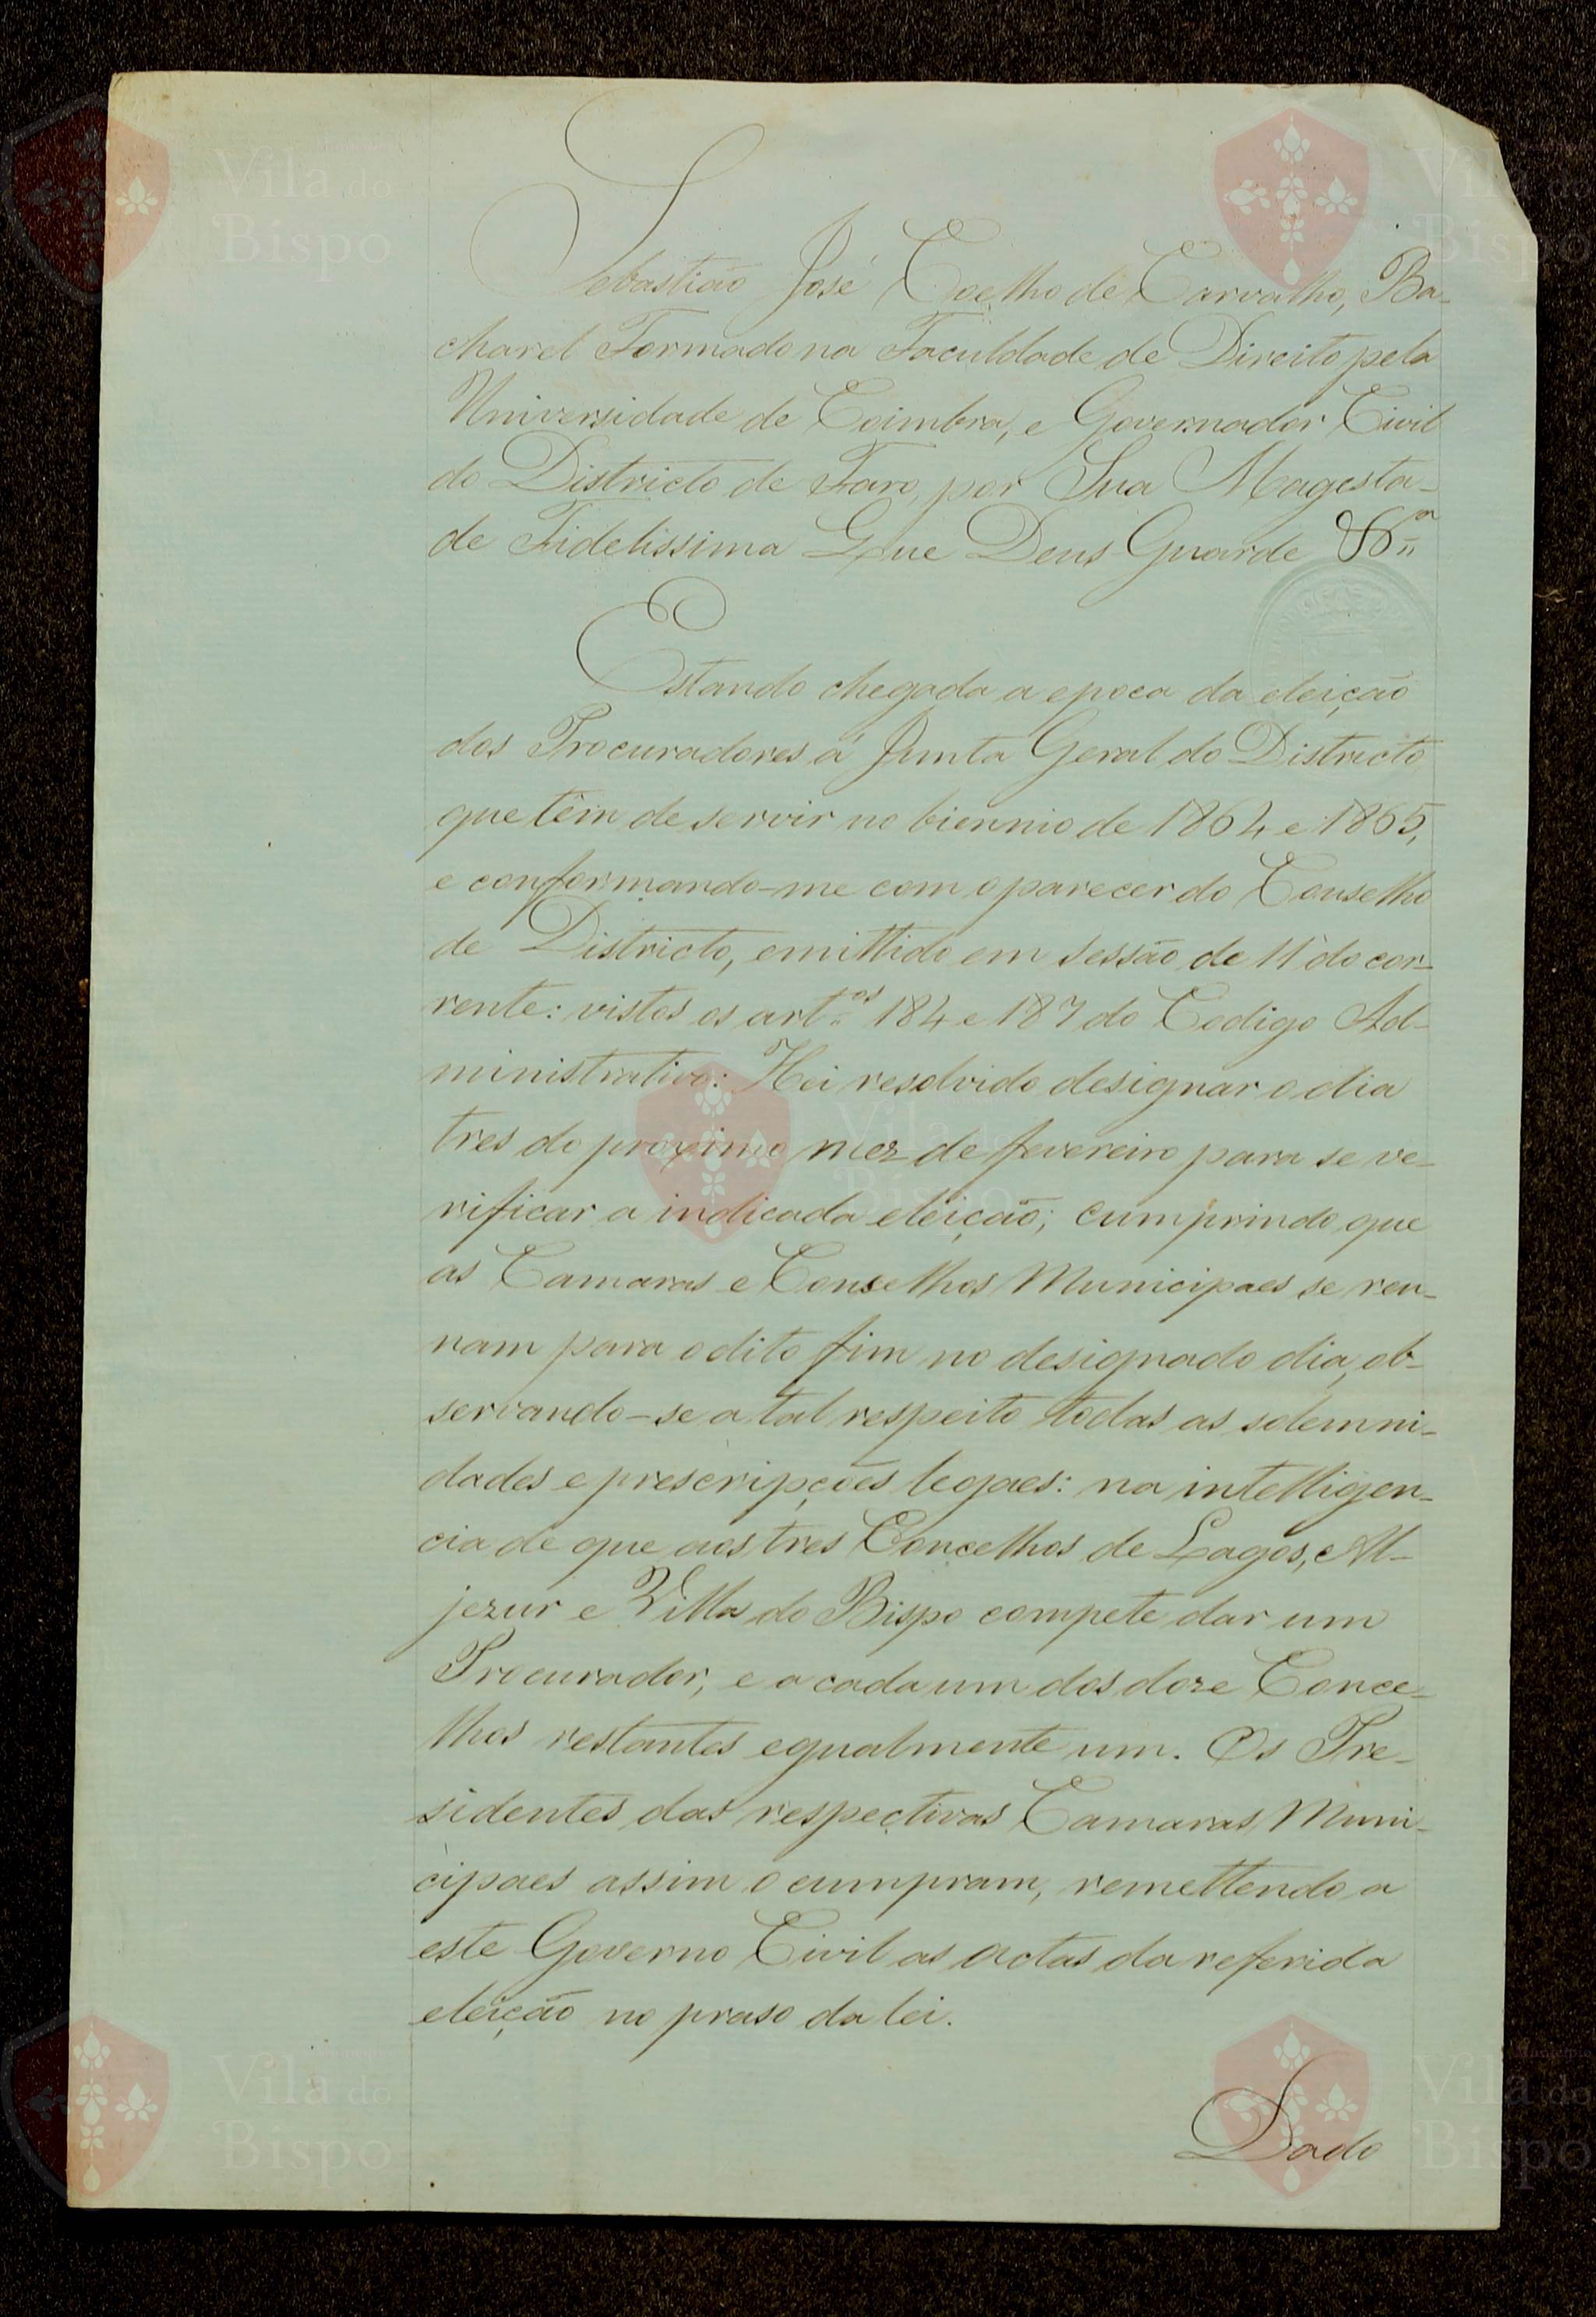 Sebastião José Coelho de Carvalho, Ba-
charel Formado na Faculdade de Direito pela
Universidade de Coimbra, e Governador Civil
do Districto de Faro, por Sua Magesta-
de Fidelissima Que Deus Guarde &ª
Estando chegada a epoca da eleição
dos Procuradores á Junta Geral do Districto
que têm de servir no biennio de 1864 e 1865,
e conformando-me com o parecer do Conselho
de Districto, emittido em sessão de 11 do cor-
rente: vistos os art.os 184 e 187 do Codigo Ad-
ministrativo: Hei resolvido designar o dia
tres do proximo mez de fevereiro para se ve-
rificar a indicada eleição; cumprindo que
as Camaras e Conselhos Municipaes se reu-
nam para o dito fim no designado dia, ob-
servando-se a tal respeito todas as solemni-
dades e prescripções legaes: na intelligen-
cia de que aos tres Concelhos de Lagos, Al-
jezur e Villa do Bispo compete dar um
Procurador, e a cada um dos doze Conce-
lhos restantes egualmente um. Os Pre-
sidentes das respectivas Camaras Muni-
cipaes assim o cumpram, remettendo a
este Governo Civil as actas da referida
eleição no praso da lei.
Dado
Vila do
Bispo
Vila do
Bispo
Vila do
Bispo
Vila do
Bispo
Município
Vila do
Bispo